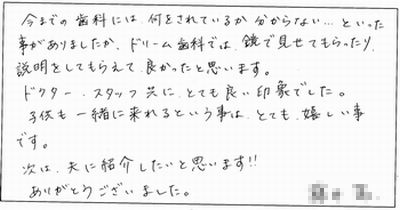 今までの歯科には、何をされているか分からない…といった
事がありましたが、ドリーム歯科では、鏡で見せてもらったり、
説明をしてもらえて、良かったと思います。
ドクター、スタッフ共に、とても良い印象でした。
子供も一緒に来れるという事は、とても、嬉しい事
です。
次は、夫に紹介したいと思います!!
ありがとうございました。